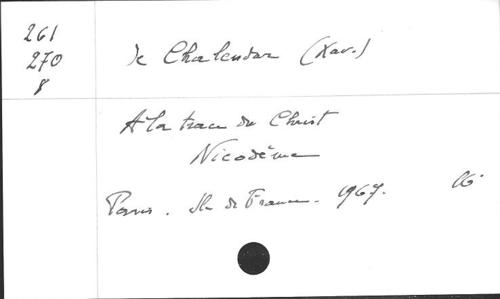 261
270
8
de Chalendar (Xav.)
A la trace du Christ
Nicodème
Paris. Ile de France. 1967.